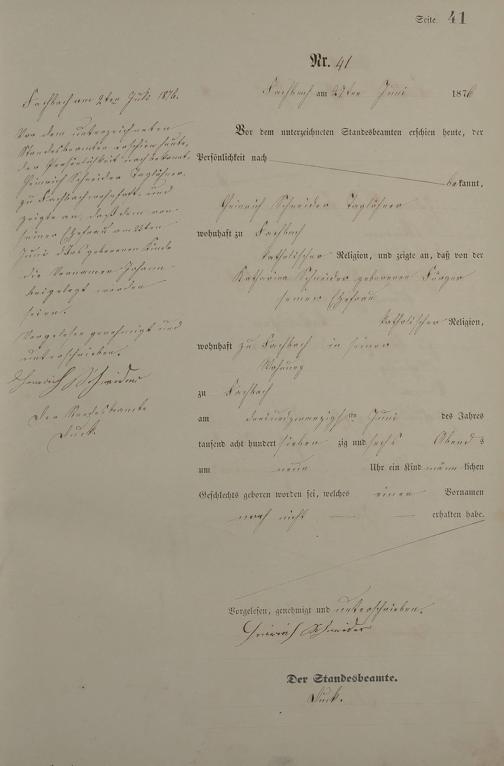 Seite 41
Nr. 41
Fachbach am 2ten Juli 1876.
Vor dem unterzeichneten
Standesbeamten erschien heute,
der Persönlichkeit nach bekannt,
Heinrich Schneider Taglöhner
zu Fachbach wohnhaft, und
zeigte an, daß dem von
seiner Ehefrau am
Juni geborenen Kinde
die Vornamen Johann
beigelegt worden
seien.
Vorgelesen genehmigt und
unterschrieben.
Heinrich Schneider
Der Standesbeamte
Fachbach am Juni 1876
Vor dem unterzeichneten Standesbeamten erschien heute, der
Persönlichkeit nach
bekannt,
Heinrich Schneider Taglöhner
wohnhaft zu Fachbach
katholischer Religion, und zeigte an, daß von der
Katharina Schneider geborenen
seiner Ehefrau
katholischer Religion,
wohnhaft zu Fachbach in seiner
Wohnung
zu Fachbach
am dreiundzwanzigsten Juni des Jahres
tausend acht hundert sieben zig und sechs Abends
um neun Uhr ein Kind männlichen
Geschlechts geboren worden sei, welches einen Vornamen
noch nicht — — erhalten habe.
Vorgelesen, genehmigt und unterschrieben.
Heinrich Schneider
Der Standesbeamte.